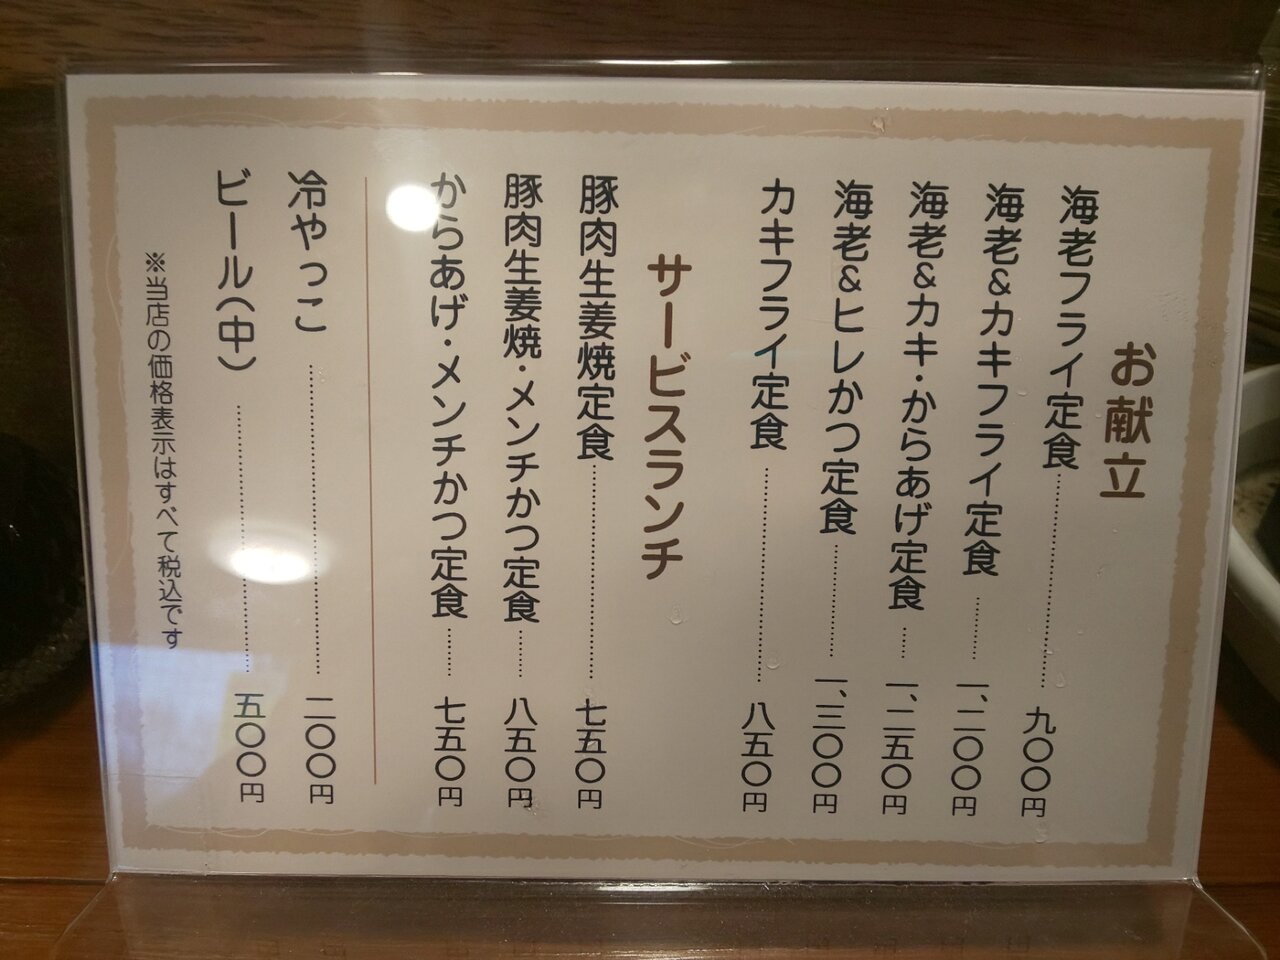 お献立
海老フライ定食 九〇〇円
海老&カキフライ定食 一、二〇〇円
海老&カキ・からあげ定食 一、二五〇円
海老&ヒレかつ定食 一、三〇〇円
カキフライ定食 八五〇円
サービスランチ
豚肉生姜焼定食 七五〇円
豚肉生姜焼・メンチかつ定食 八五〇円
からあげ・メンチかつ定食 七五〇円
冷やっこ 二〇〇円
ビール(中) 五〇〇円
※当店の価格表示はすべて税込です